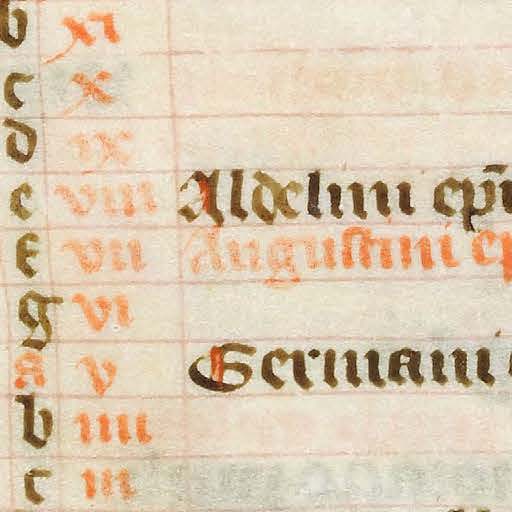 b xi
c x
d ix
e viii Aldelmi ep̄i
f vii Augustini ep
g vi
A v Germani
b iiii
c iii